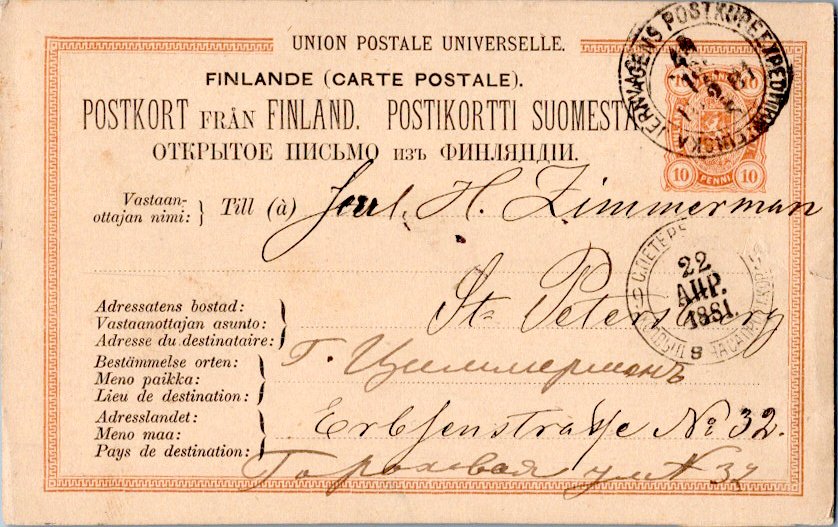 UNION POSTALE UNIVERSELLE.
FINLANDE (CARTE POSTALE).
POSTKORT FRÅN FINLAND. POSTIKORTTI SUOMESTA
ОТКРЫТОЕ ПИСЬМО изъ ФИНЛЯНДІИ.
10 PENNI 10
Vastaan-
ottajan nimi: } Till (à) H. Zimmerman
С.ПЕТЕРБ
22
АПР.
1881.
8
St Petersburg
Adressatens bostad:
Vastaanottajan asunto:
Adresse du destinataire:
Г. Циммерманъ
Bestämmelse orten:
Meno paikka:
Lieu de destination:
Erbsenstrasse No 32.
Adresslandet:
Meno maa:
Pays de destination:
Гороховая ул N 32